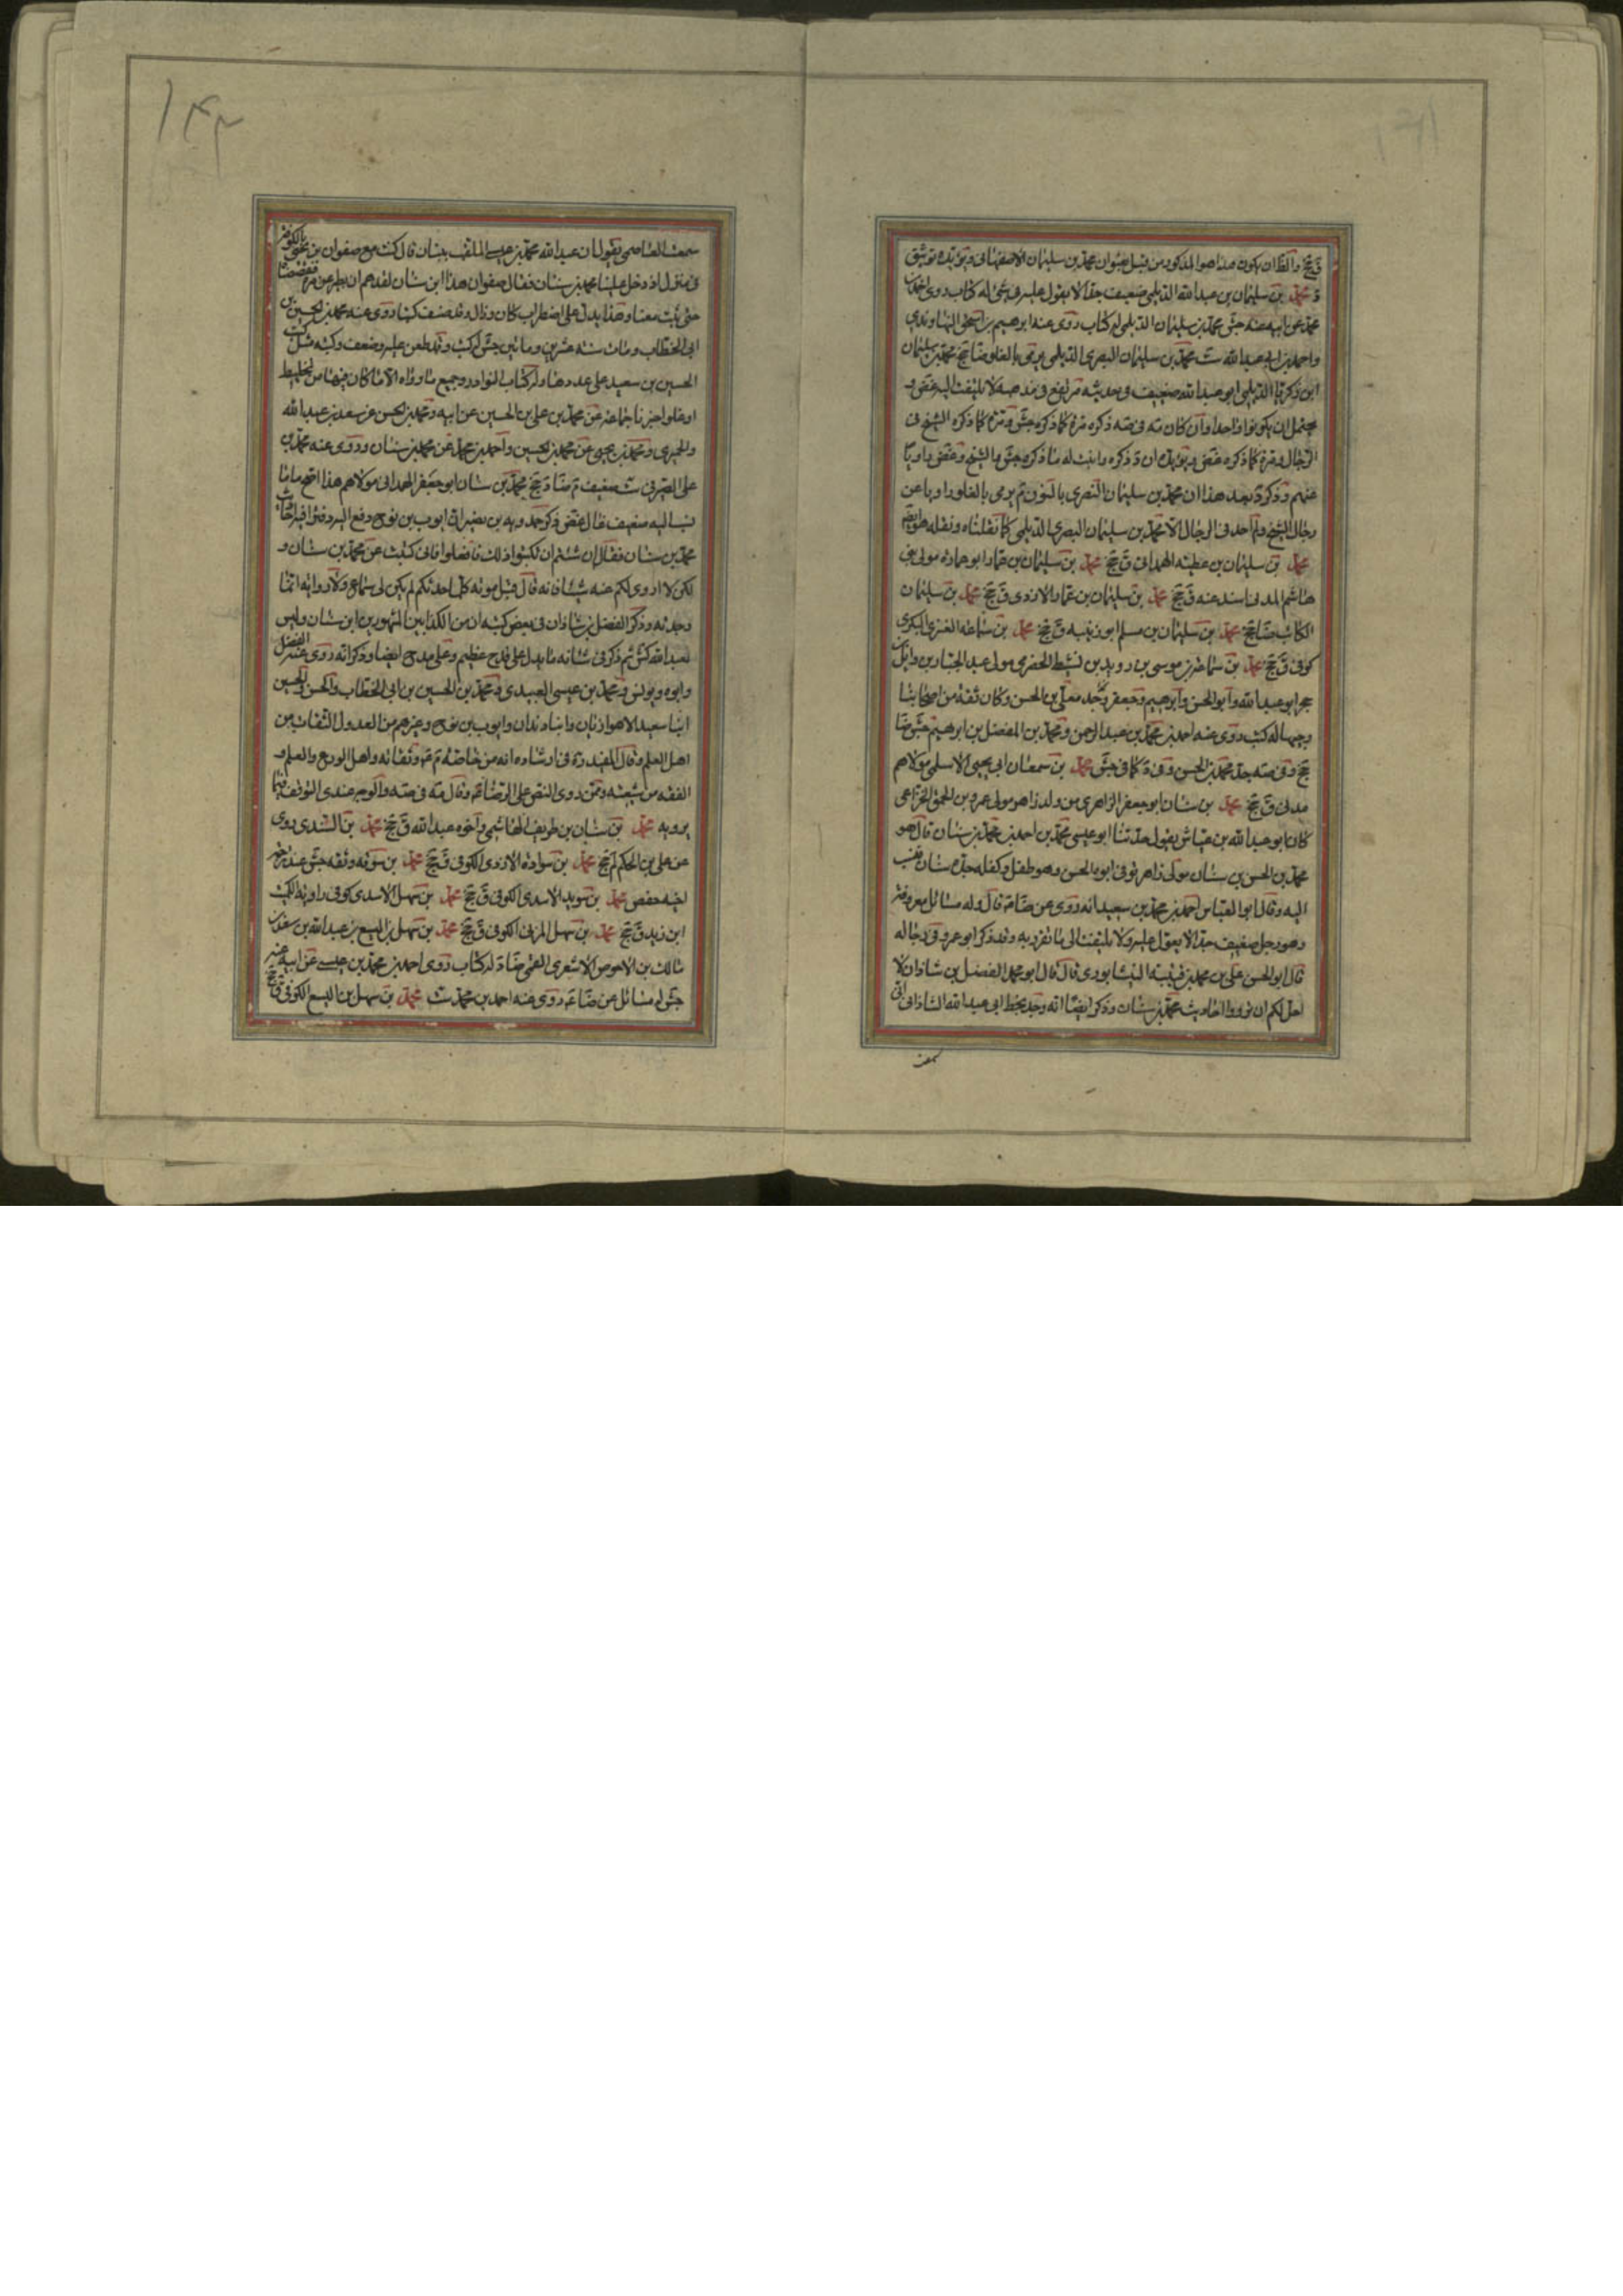 محمد بن سليمان بن عبد الله الديلمي ضعيف جدا لا يعول عليه في شئ له كتاب روى
محمد عن ابيه عنه جش محمد بن سليمان الديلمي له كتاب روى عنه ابرهيم بن اسحق النهاوندي
واحمد بن ابي عبد الله ست محمد بن سليمان البصري الديلمي يرمى بالغلو ضا جخ محمد بن سليمان
ابن زكريا الديلمي ابو عبد الله ضعيف في حديثه مرتفع في مذهبه لا يلتفت اليه غض و
يحتمل ان يكونوا واحدا وان كان مه في صه ذكره مرة كما ذكره جش ومرة كما ذكره الشيخ في
الرجال ومرة كما ذكره غض
عنهم وذكر د بعد هذا ان محمد بن سليمان النصري بالنون م يرمى بالغلو راويا عن
رجال الشيخ ولم اجد في الرجال الا محمد بن سليمان البصري الديلمي كما نقلناه ونقله هو ايضا
محمد بن سليمان بن عطية الهمداني ق جخ محمد بن سليمان بن عمار ابو عمارة مولى بني
هاشم المدني اسند عنه ق جخ محمد بن سليمان بن عمار الازدي ق جخ محمد بن سليمان
الكاتب ضا جخ محمد بن سليمان بن مسلم ابو زنيبه ق جخ محمد بن سماعة العنزي البكري
كوفي ق جخ محمد بن سماعة بن موسى بن رويد بن نشيط الحضرمي مولى عبد الجبار بن وائل بن
حجر ابو عبد الله وابو الحسن وابرهيم وجعفر وجد معلى بن الحسن وكان ثقة من اصحابنا
وجيها له كتب روى عنه احمد بن محمد بن عبد الرحمن ومحمد بن المفضل بن ابرهيم جش ضا
جخ وفي صه جد محمد بن الحسن وفي د كما في جش محمد بن سمعان ابي يحيى الاسلمي مولاهم
مدني ق جخ محمد بن سنان ابو جعفر الزاهري من ولد زاهر مولى عمرو بن الحمق الخزاعي
كان ابو عبد الله بن عياش يقول حدثنا ابو عيسى محمد بن احمد بن محمد بن سنان قال هو
محمد بن الحسن بن سنان مولى زاهر توفي ابوه الحسن وهو طفل وكفله جده سنان فنسب
اليه وقال ابو العباس احمد بن محمد بن سعيد انه روى عن ضا ع قال وله مسائل معروفة
وهو رجل ضعيف جدا لا يعول عليه ولا يلتفت الى ما تفرد به وقد ذكر ابو عمرو في رجاله
قال ابو الحسن علي بن محمد بن قتيبة النيشابوري قال قال ابو محمد الفضل بن شاذان لا
احل لكم ان ترووا احاديث محمد بن سنان وذكر ايضا انه وجد بخط ابي عبد الله الشاذاني اني
سمعت
١٤٢
سمعت العاصمي يقول ان عبد الله محمد بن عيسى الملقب ببنان قال كنت مع صفوان بن يحيى بالكوفة
في منزل اذ دخل علينا محمد بن سنان فقال صفوان هذا ابن سنان لقد هم ان يطير غير مرة فقصصناه
حتى ثبت معنا وهذا يدل على اضطراب كان وزال وقد صنف كتبا روى عنه محمد بن الحسين بن
ابي الخطاب ومات سنة عشرين ومائتين جش له كتب وقد طعن عليه وضعف وكتبه مثل كتب
الحسين بن سعيد على عددها وله كتاب النوادر وجميع ما رواه الا ما كان فيها من تخليط
او غلو اخبرنا جماعة عن محمد بن علي بن الحسين عن ابيه ومحمد بن الحسن عن سعد بن عبد الله
والحميري ومحمد بن يحيى عن محمد بن الحسين واحمد بن محمد عن محمد بن سنان وروى عنه محمد بن
علي الصيرفي ست ضعيف م ضا د جخ محمد بن سنان ابو جعفر الهمداني مولاهم هذا اصح ما
نسب اليه ضعيف غال غض ذكر حمدويه بن نصير ان ايوب بن نوح دفع اليه دفترا فيه احاديث
محمد بن سنان فقال ان شئتم ان تكتبوا ذلك فافعلوا فاني كتبت عن محمد بن سنان و
لكن لا اروي لكم عنه شيئا فانه قال قبل موته كلما احدثكم لم يكن لي سماع ولا رواية انما
وجدته وذكر الفضل بن شاذان في بعض كتبه ان من الكذابين المشهورين ابن سنان وليس
لعبد الله كش ثم ذكر في شانه ما يدل على قدح عظيم وعلى مدح ايضا وذكر انه روى عنه الفضل
وابوه ويونس ومحمد بن عيسى العبيدي ومحمد بن الحسين بن ابي الخطاب والحسن والحسين
ابنا سعيد الاهوازيان وابنا دندان وايوب بن نوح وغيرهم من العدول الثقات من
اهل العلم وقال المفيد ره في ارشاده انه من خاصة م ع وثقاته واهل الورع والعلم و
الفقه من شيعته وممن روى النص على الرضا ع وقال مه في صه والوجه عندي التوقف فيما
يرويه محمد بن سنان بن طريف الهاشمي واخوه عبد الله ق جخ محمد بن السندي روى
عن علي بن الحكم لم جخ محمد بن سوادة الازدي الكوفي ق جخ محمد بن سوقه وثقه جش عند ترجمة
اخيه حفص محمد بن سويد الاسدي الكوفي ق جخ محمد بن سهل الاسدي كوفي راوية الكميت
ابن زيد ق جخ محمد بن سهل المزني الكوفي ق جخ محمد بن سهل بن اليسع بن عبد الله بن سعد بن
مالك بن الاحوص الاشعري القمي ضا د له كتاب روى احمد بن محمد بن عيسى عن ابيه عنه
جش له مسائل عن ضا ع روى عنه احمد بن محمد ست محمد بن سهل بن اليسع الكوفي ق جخ